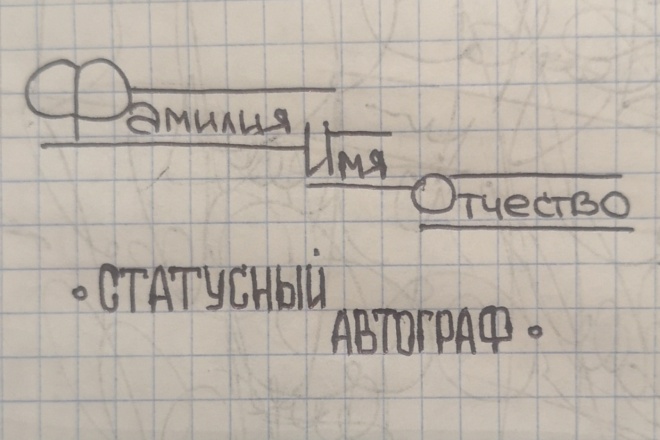 Фамилия
Имя
Отчество
• СТАТУСНЫЙ
АВТОГРАФ •